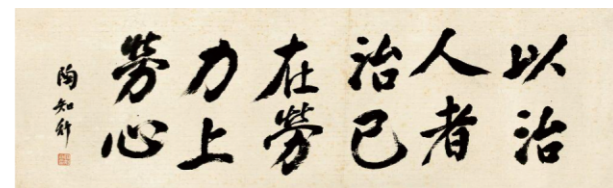 以治
人者
治己
在勞
力上
勞心
陶知行